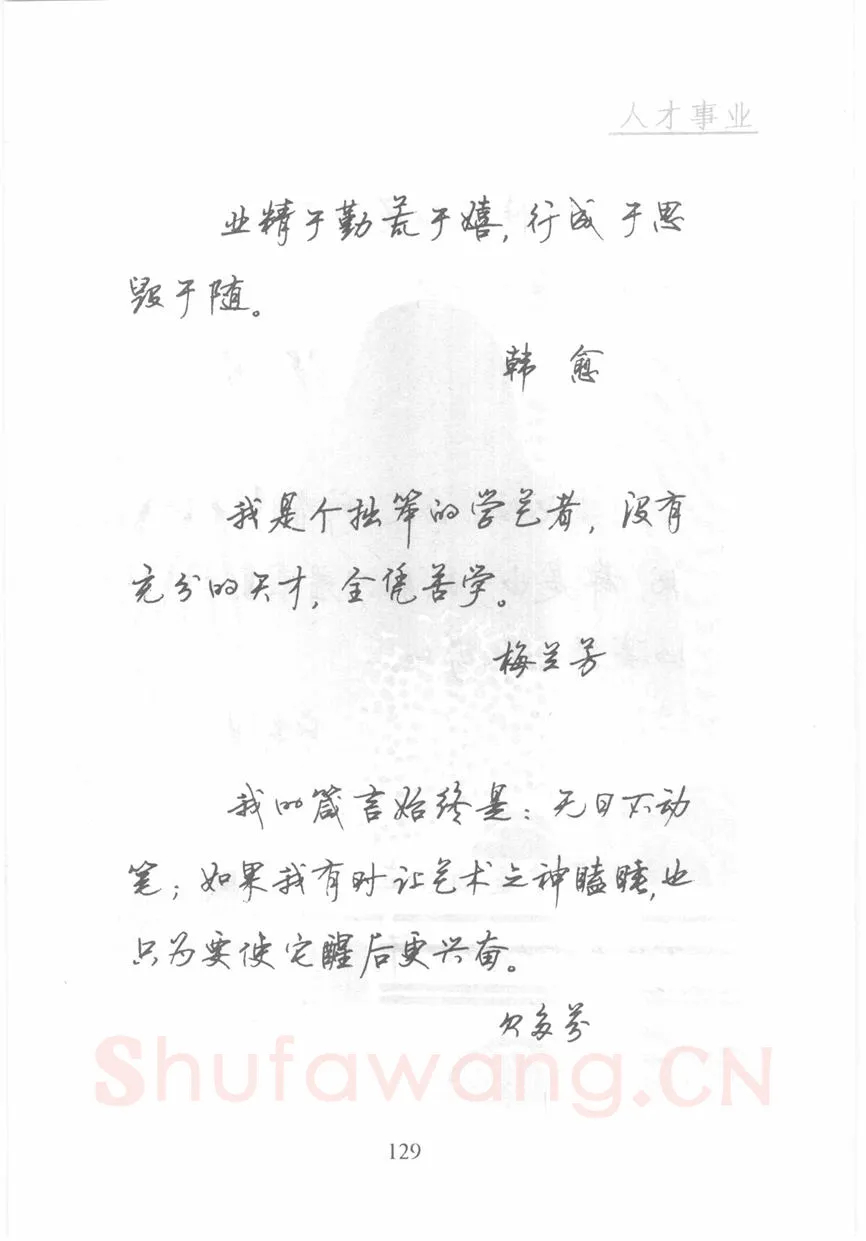 人才事业
业精于勤荒于嬉,行成于思
毁于随。
韩愈
我是个拙笨的学艺者,没有
充分的天才,全凭苦学。
梅兰芳
我的箴言始终是:无日不动
笔;如果我有时让艺术之神瞌睡,也
只为要使它醒后更兴奋。
贝多芬
Shufawang.CN
129